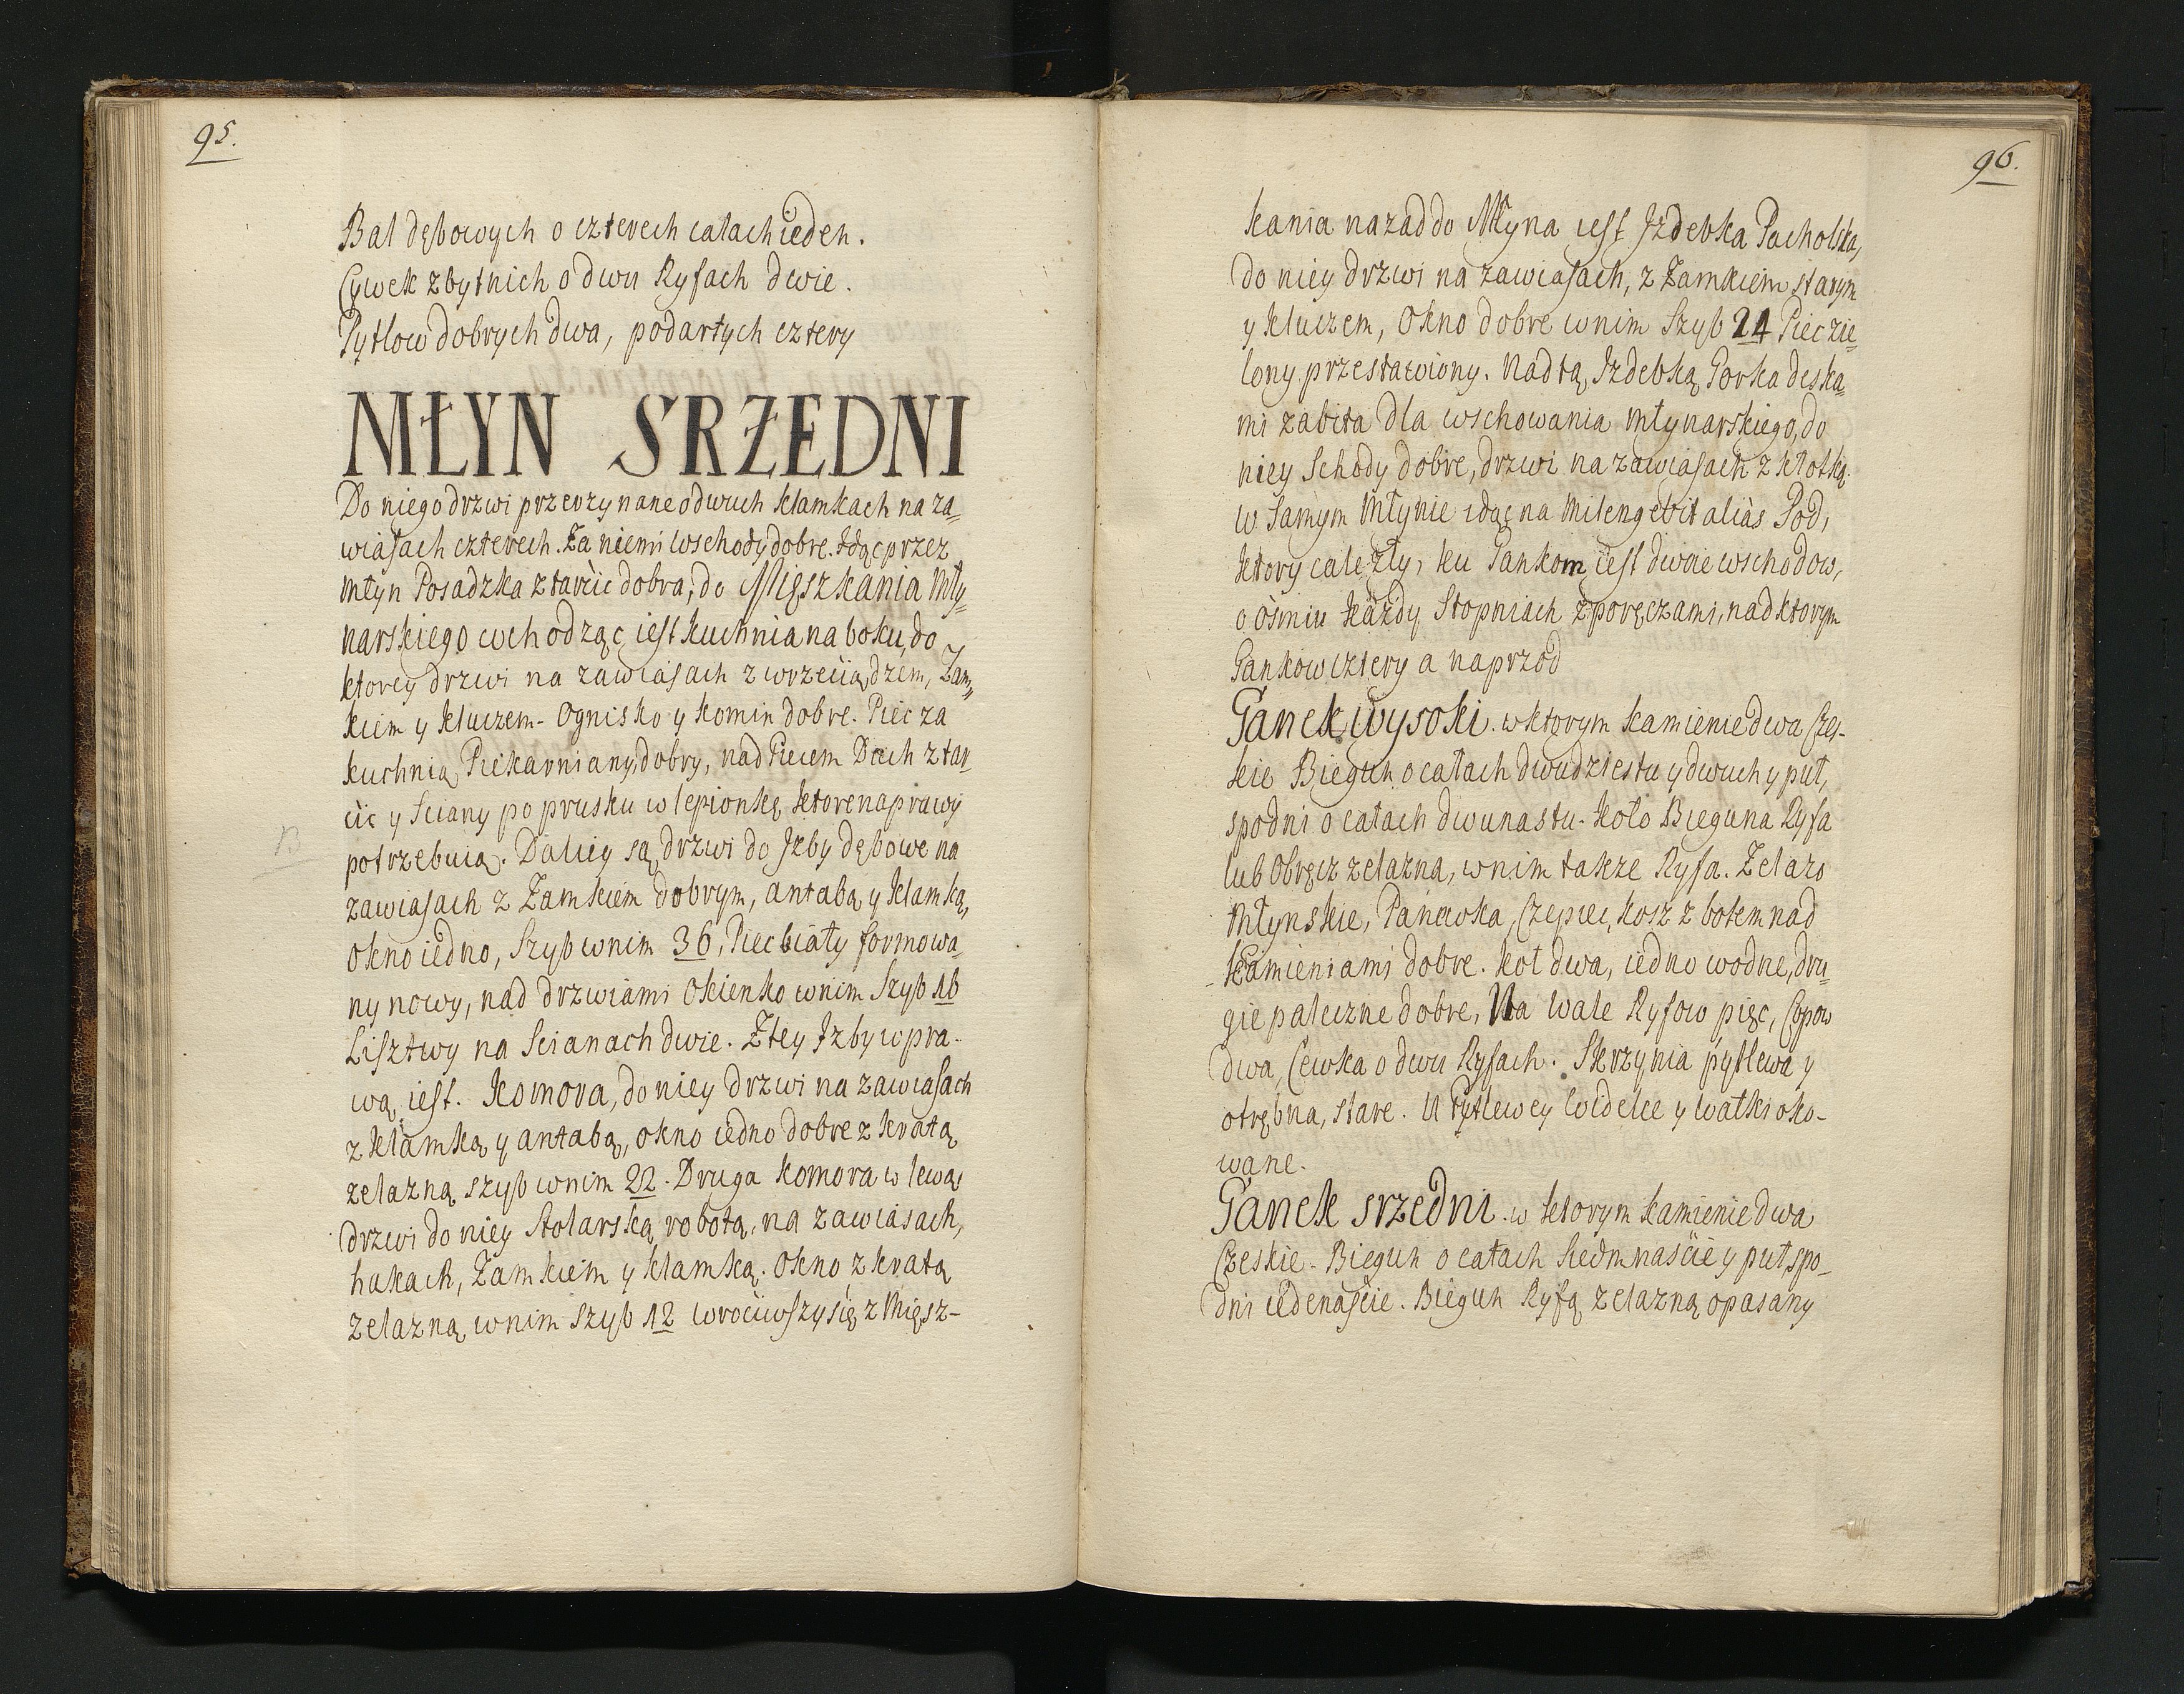 95.
Bal dębowych o czterech calach ieden.
Cywek zbytnich o dwu Ryfach dwie.
Pytlow dobrych dwa, podartych cztery
MŁYN SRZEDNI
Do niego drzwi przerzynane o dwuch klamkach na za„
wiasach czterech. Za niemi wschody dobre. Idąc przez
Młyn Posadzka z tarcic dobra, do Mięszkania Mły„
narskiego wchodząc iest kuchnia na boku, do
ktorey drzwi na zawiasach z wrzeciądzem, Zam„
kiem y kluczem - Ognisko y komin dobre. Piec za
kuchnią Piekarniany dobry, nad Piecem Dach z tar
cic y sciany po prusku w lepionkę, ktore naprawy
potrzebuią. Daliey są drzwi do Jzby dębowe na
zawiasach z Zamkiem dobrym, antabą y klamką,
Okno iedno, Szyb w nim 36, Piec biały formowa„
ny nowy, nad drzwiami Okienko w nim Szyb 16
Lisztwy na Scianach dwie. Z tey Jzby w pra-
wą iest. Komora, do niey drzwi na zawiasach
z klamką y antabą, okno iedno dobre z kratą
zelazną szyb w nim 22. Druga komora w lewą
drzwi do niey Stolarską robotą, na zawiasach,
hakach, Zamkiem y klamką. Okno z kratą
zelazną w nim szyb 12 wrociwszy się z Mięsz-
B
96.
kania nazad do Młyna iest Jzdebka Pacholska,
do niey drzwi na zawiasach, z Zamkiem starym
y kluczem, Okno dobre w nim Szyb 24 Piec zie„
lony przestawiony. Nad tą Jzdebką Gorka deska„
mi zabita dla wschowania Młynarskiego, do
niey Schody dobre, drzwi na zawiasach z kłotką.
w Samym Młynie idąc na Milengerit aliàs Pod,
ktory cale zły, ku Gankom iest dwoie wschodow,
o osmiu każdy Stopniach z poręczami, nad ktorym
Gankow cztery a naprzod
Ganek wysoki. w ktorym kamienie dwa Czes-
kie Biegun o całach dwudziestu y dwuch y puł,
spodni o całach dwunastu - koło Bieguna Ryfa
lub Obręcz zelazna, w nim także Ryfa. Zelazo
Młynskie, Panewka, Czepiec, kosz z botem nad
kamieniami dobre. koł dwa, iedno wodne, dru„
gie paleczne dobre, Na wale Ryfow pięc, Czpow
dwa, Cewka o dwu Ryfach. Skrzynia pytlewa y
otrębna, stare. U Pytlewey Widelce y wałki oko-
wane.
Ganek srzedni. w ktorym kamienie dwa
Czeskie - Biegun o całach siedmnaście y puł, spo-
dni iedenaście. Biegun Ryfą zelazną opasany